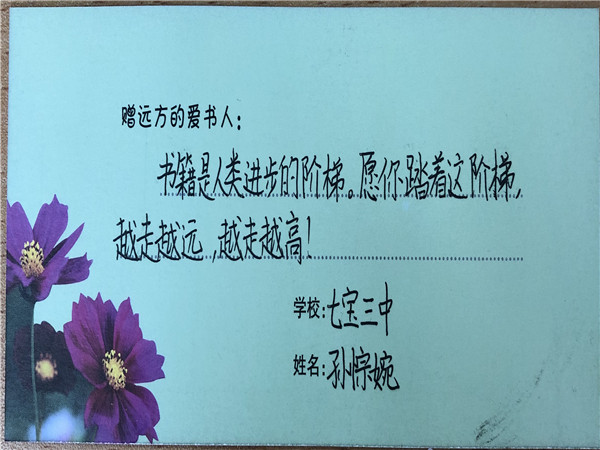 赠远方的爱书人：
书籍是人类进步的阶梯。愿你踏着这阶梯，
越走越远，越走越高！
学校：七宝三中
姓名：孙悰婉